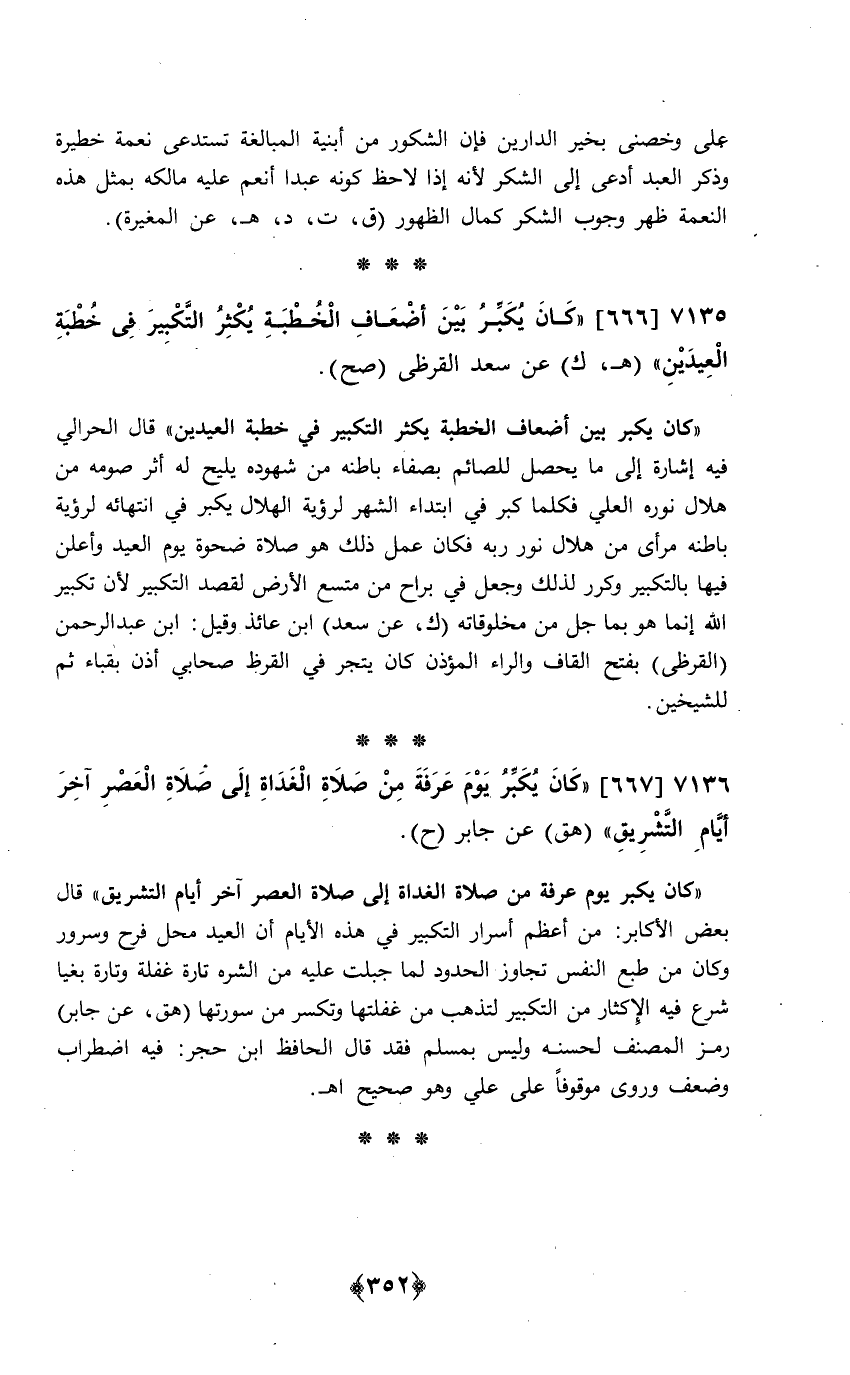 على وخصنى بخير الدارين فإن الشكور من أبنية المبالغة تستدعى نعمة خطيرة
وذكر العبد أدعى إلى الشكر لأنه إذا لاحظ كونه عبدا أنعم عليه مالكه بمثل هذه
النعمة ظهر وجوب الشكر كمال الظهور (ق، ت، د، هـ، عن المغيرة).
* * *
٧١٣٥ [٦٦٦] «كَـانَ يُكَبِّـرُ بَيْنَ أضْعَـافِ الْخُـطْبَـةِ يُكْثِرُ التَّكْبِيرَ فِى خُطْبَةِ
الْعِيدَيْنِ» (هـ، ك) عن سعد القرظى (صح).
«كان يكبر بين أضعاف الخطبة يكثر التكبير في خطبة العيدين» قال الحرالي
فيه إشارة إلى ما يحصل للصائم بصفاء باطنه من شهوده يليح له أثر صومه من
هلال نوره العلي فكلما كبر في ابتداء الشهر لرؤية الهلال يكبر في انتهائه لرؤية
باطنه مرأى من هلال نور ربه فكان عمل ذلك هو صلاة ضحوة يوم العيد وأعلن
فيها بالتكبير وكرر لذلك وجعل في براح من متسع الأرض لقصد التكبير لأن تكبير
الله إنما هو بما جل من مخلوقاته (ك، عن سعد) ابن عائذ وقيل: ابن عبدالرحمن
(القرظى) بفتح القاف والراء المؤذن كان يتجر في القرظ صحابي أذن بقباء ثم
للشيخين.
* * *
٧١٣٦ [٦٦٧] «كَانَ يُكَبِّرُ يَوْمَ عَرَفَةَ مِنْ صَلَاةِ الْغَدَاةِ إلَى صَلَاةِ الْعَصْرِ آخِرَ
أيَّامِ التَّشْرِيقِ» (هق) عن جابر (ح).
«كان يكبر يوم عرفة من صلاة الغداة إلى صلاة العصر آخر أيام التشريق» قال
بعض الأكابر: من أعظم أسرار التكبير في هذه الأيام أن العيد محل فرح وسرور
وكان من طبع النفس تجاوز الحدود لما جبلت عليه من الشره تارة غفلة وتارة بغيا
شرع فيه الإكثار من التكبير لتذهب من غفلتها وتكسر من سورتها (هق، عن جابر)
رمـز المصنف لحسنـه وليس بمسلم فقد قال الحافظ ابن حجر: فيه اضطراب
وضعف وروى موقوفاً على علي وهو صحيح اهـ.
* * *
﴿٣٥٢﴾